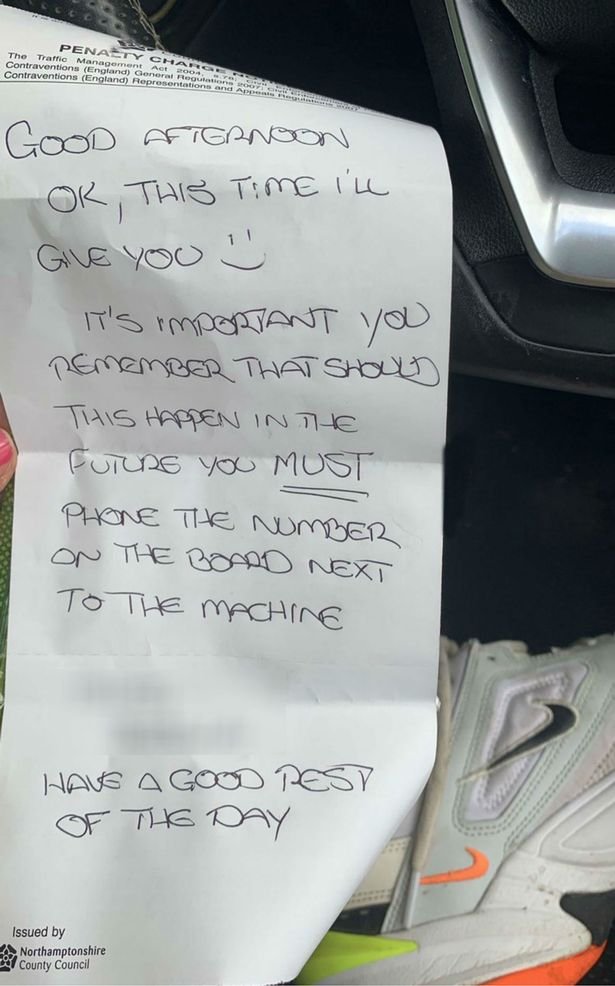 PENALTY CHARGE NOTICE
The Traffic Management Act 2004, s.78; Civil Enforcement
Contraventions (England) General Regulations 2007; Civil Enforcement
Contraventions (England) Representations and Appeals Regulations 2007
GOOD AFTERNOON
OK, THIS TIME I'LL
GIVE YOU
IT'S IMPORTANT YOU
REMEMBER THAT SHOULD
THIS HAPPEN IN THE
FUTURE YOU MUST
PHONE THE NUMBER
ON THE BOARD NEXT
TO THE MACHINE
HAVE A GOOD REST
OF THE DAY
Issued by
Northamptonshire
County Council